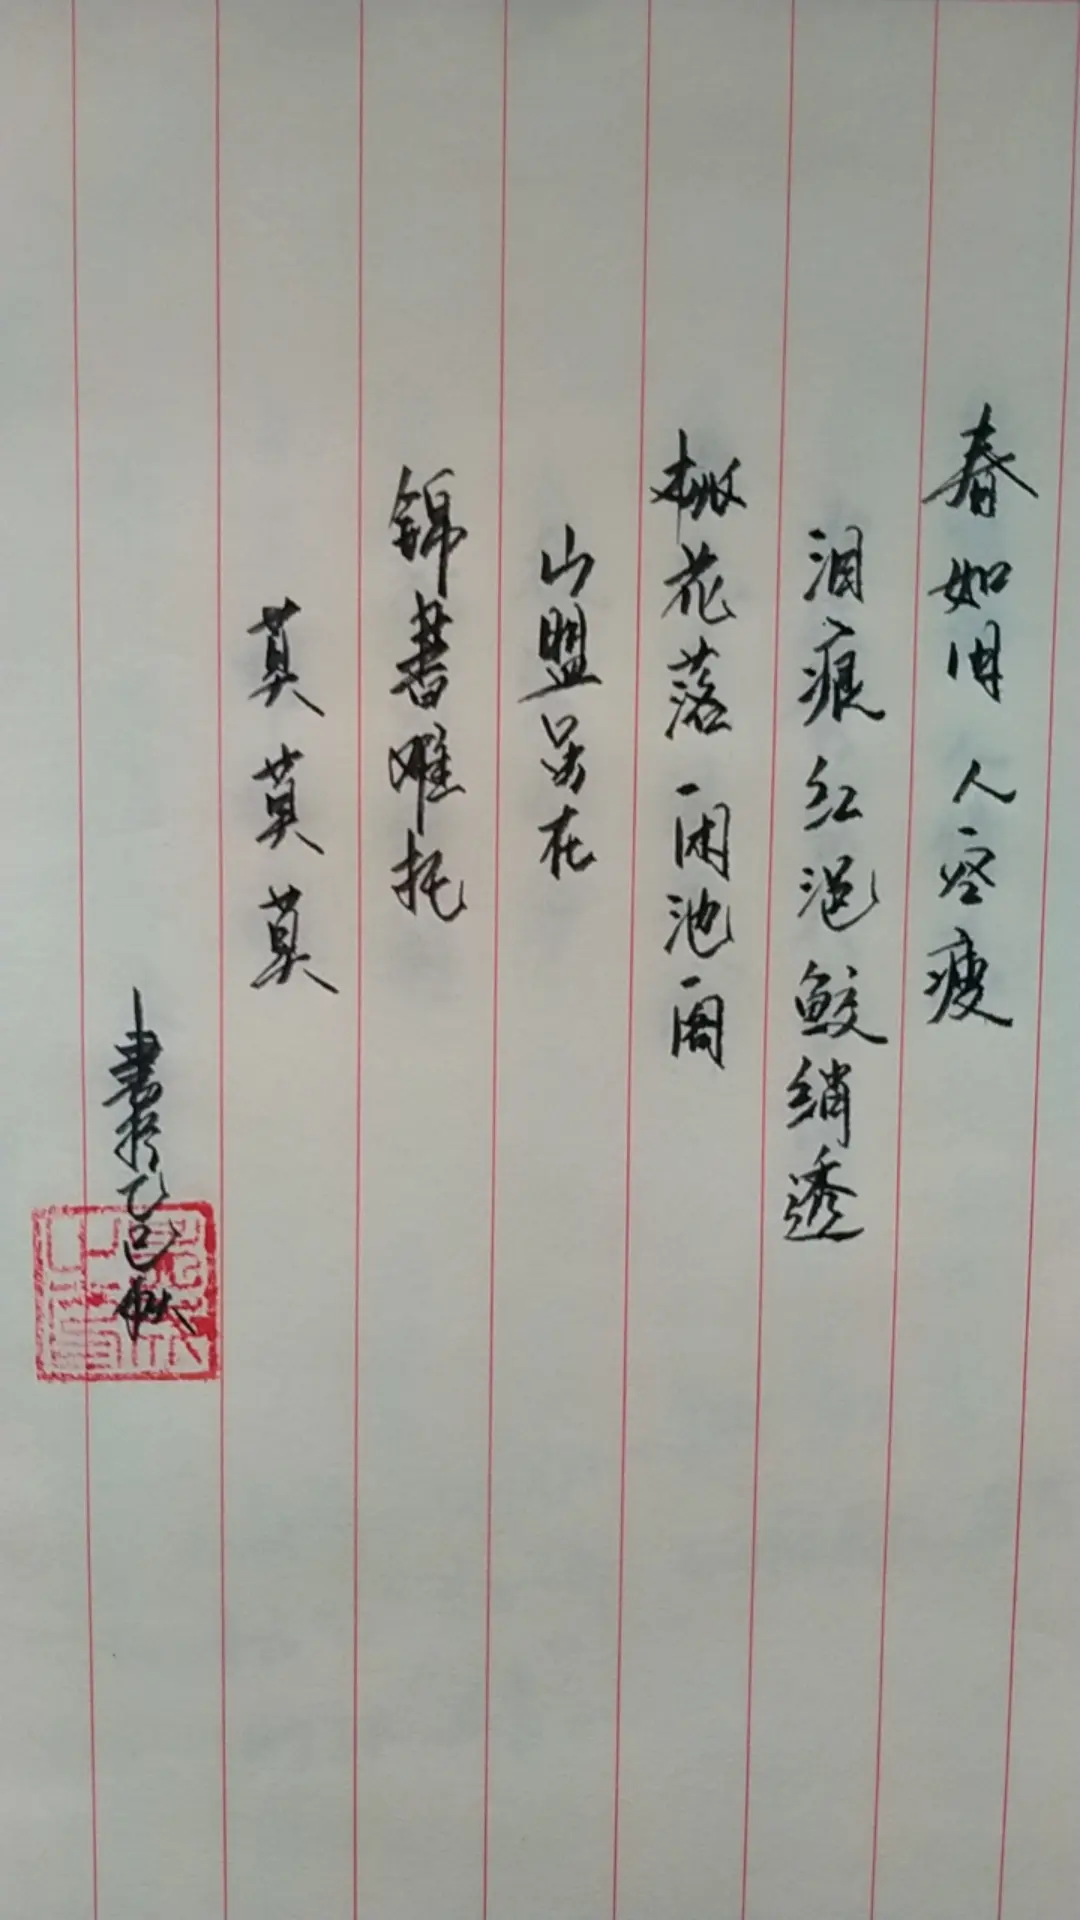 春如旧人空瘦
泪痕红浥鲛绡透
桃花落闲池阁
山盟虽在
锦书难托
莫莫莫
书于乙巳秋